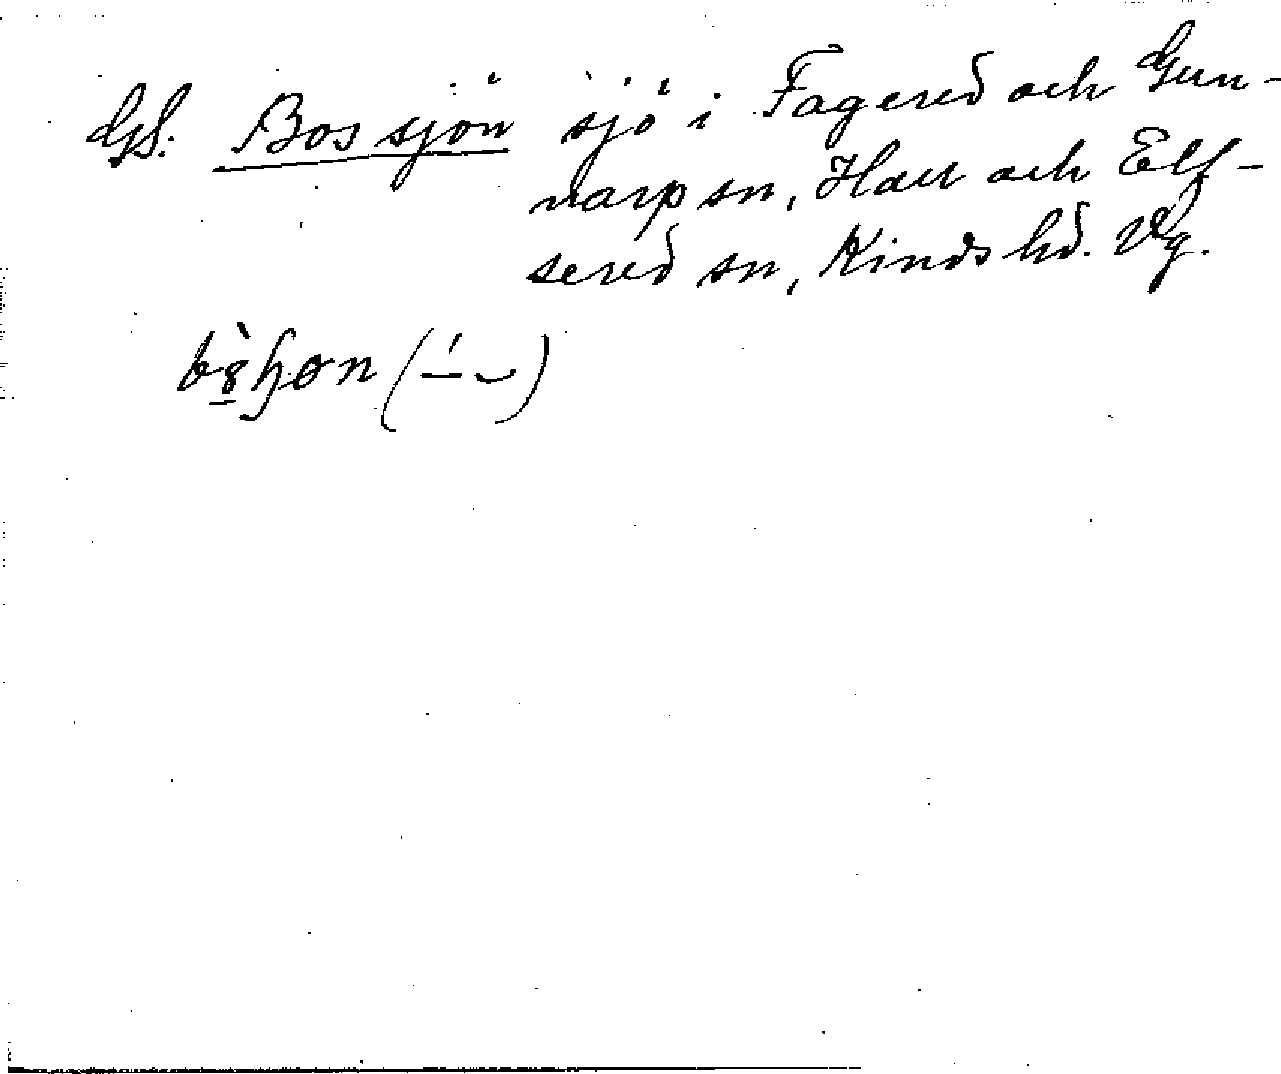 GS. Bossjön sjö i Fagered och Gun-
narp sn, Hall och Elf-
sered sn, Kinds hd. Vg.